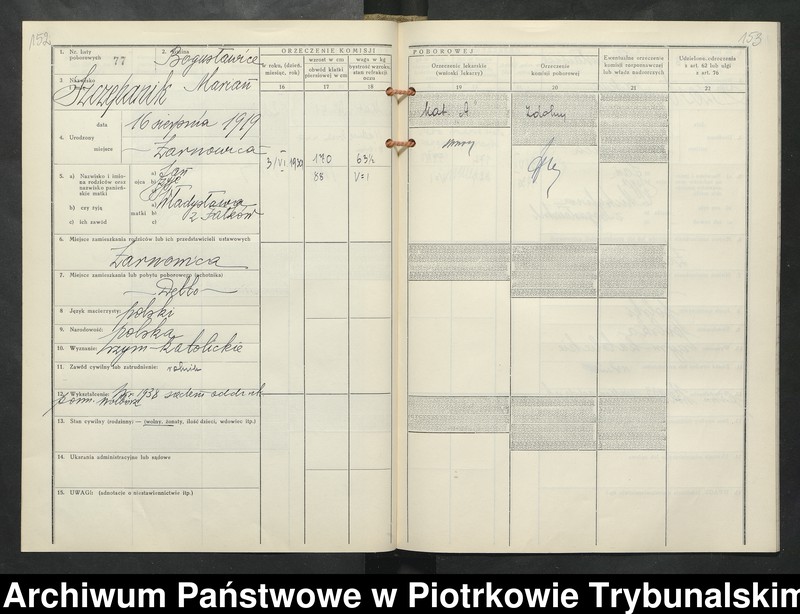 152
1. Nr. listy poborowych 77
2. Gmina Bogusławice
3 Nazwisko Szczepanik Marian
4. Urodzony
data 16 sierpnia 1919
miejsce Żarnowica
5. a) Nazwisko i imiona rodziców oraz nazwisko panieńskie matki
b) czy żyją
c) ich zawód
ojca
a) Jan
b) żyje
matki
a) Władysława
z Fałków
b)
c)
6. Miejsce zamieszkania rodziców lub ich przedstawicieli ustawowych
Żarnowica
7. Miejsce zamieszkania lub pobytu poborowego (ochotnika)
8 Język macierzysty: polski
9. Narodowość: polska
10. Wyznanie: rzym-katolickie
11. Zawód cywilny lub zatrudnienie: rolnik
12. Wykształcenie: 1938 siedem oddz.
13. Stan cywilny (rodzinny): — (wolny, żonaty, ilość dzieci, wdowiec itp.)
14. Ukarania administracyjne lub sądowe
15. UWAGI: (adnotacje o niestawiennictwie itp.)
ORZECZENIE KOMISJI
w roku, (dzień, miesiąc, rok)
wzrost w cm
obwód klatki piersiowej w cm
waga w kg
bystrość wzroku, stan refrakcji oczu
16
17
18
3/VI 1930
170
63½
85
V=1
153
POBOROWEJ
Orzeczenie lekarskie (wnioski lekarzy)
Orzeczenie komisji poborowej
Ewentualne orzeczenie komisji rozpoznawczej lub władz nadzorczych
Udzielone odroczenia z art. 62 lub ulgi z art. 76
19
20
21
22
Kat. "A"
Zdolny
Archiwum Państwowe w Piotrkowie Trybunalskim